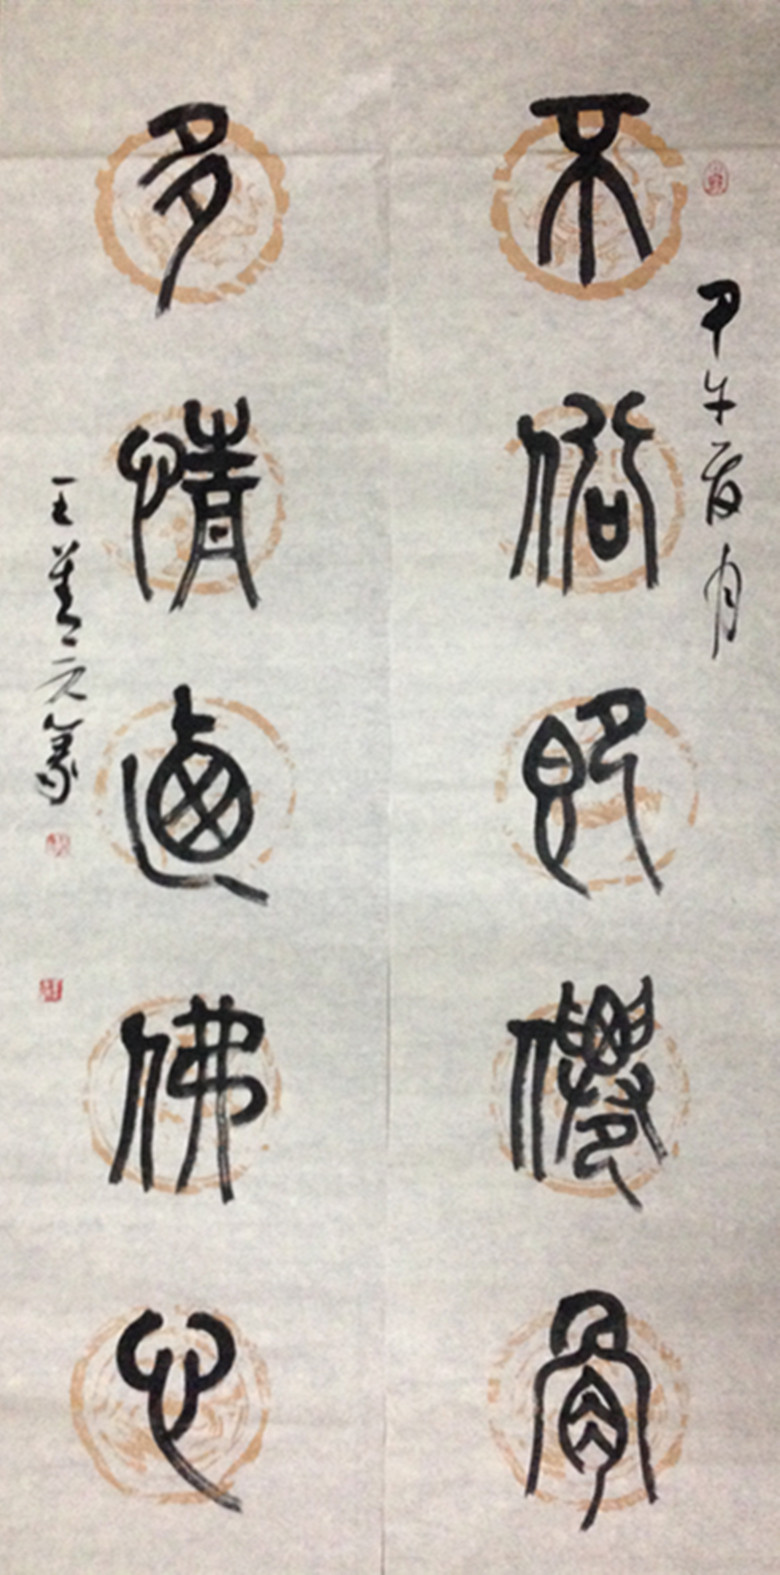 甲午夏月
不俗即僊骨
多情乃佛心
王善元篆